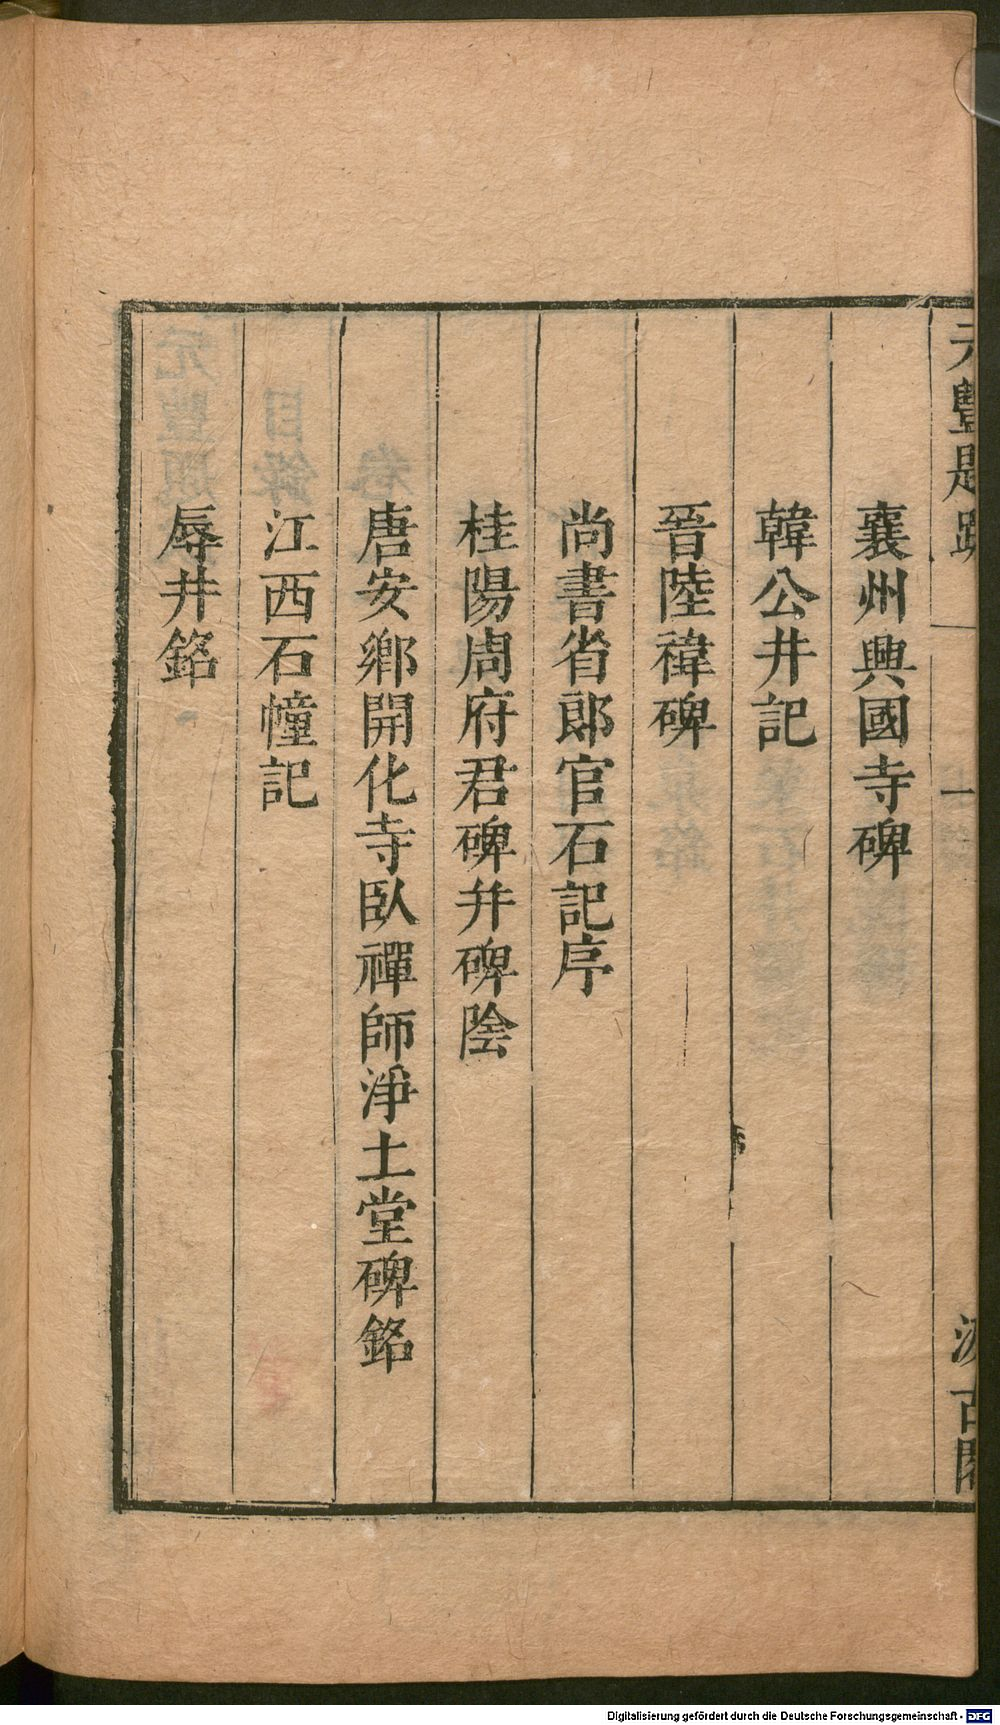 元豐題跋
一
汲古閣
襄州興國寺碑
韓公井記
晉陸禕碑
尚書省郎官石記序
桂陽周府君碑并碑陰
唐安鄉開化寺臥禪師淨土堂碑銘
江西石幢記
辱井銘
Digitalisierung gefördert durch die Deutsche Forschungsgemeinschaft - DFG